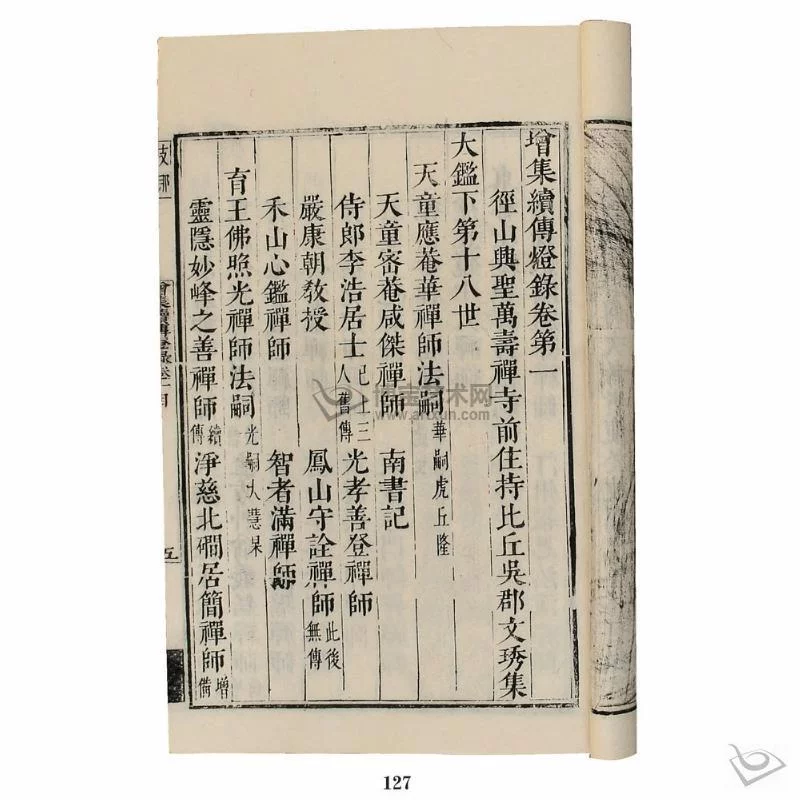 增集續傳燈錄卷第一
徑山興聖萬壽禪寺前住持比丘吳郡文琇集
大鑑下第十八世
天童應菴華禪師法嗣 華嗣虎丘隆
天童密菴咸傑禪師 南書記
侍郎李浩居士 已上三人舊傳 光孝善登禪師
嚴康朝教授 鳳山守詮禪師 此後無傳
禾山心鑑禪師 智者滿禪師
育王佛照光禪師法嗣 光嗣大慧杲
靈隱妙峰之善禪師 續傳 淨慈北磵居簡禪師 增備
支那
增集續傳燈錄卷一目
五
博宝艺术网
www.artxun.com
127